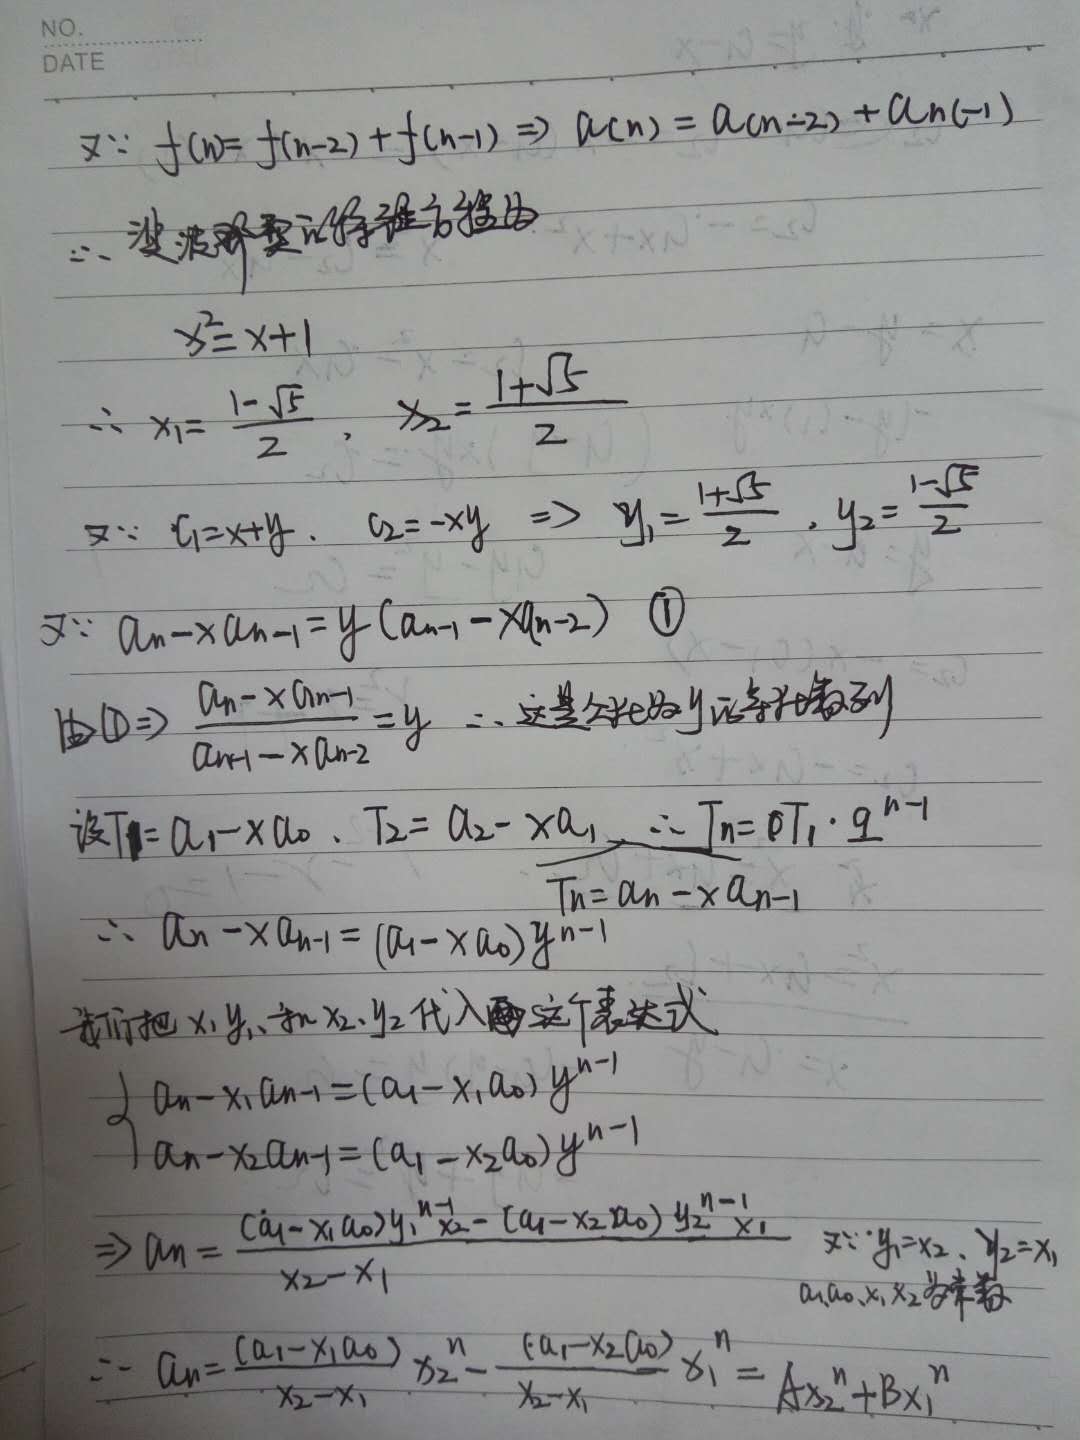 NO.
DATE
又∵ f(n)= f(n-2) + f(n-1) ⇒ a(n) = a(n-2) + an(-1)
∴ 波波那契的特征方程为
x²= x+1
∴ x₁= (1-√5)/2 , x₂= (1+√5)/2
又∵ c₁=x+y . c₂=-xy ⇒ y₁= (1+√5)/2 . y₂= (1-√5)/2
又∵ aₙ-xaₙ₋₁=y(aₙ₋₁-xaₙ₋₂) ①
由①⇒ (aₙ-xaₙ₋₁)/(aₙ₋₁-xaₙ₋₂) =y ∴ 这是个比为y的等比数列
设T₁=a₁-xa₀ 、T₂= a₂-xa₁ ∴ Tₙ= T₁·qⁿ⁻¹
Tₙ=aₙ-xaₙ₋₁
∴ aₙ-xaₙ₋₁=(a₁-xa₀)yⁿ⁻¹
我们把x₁y₁、和x₂、y₂代入 这个表达式
aₙ-x₁aₙ₋₁=(a₁-x₁a₀)yⁿ⁻¹
aₙ-x₂aₙ₋₁=(a₁-x₂a₀)yⁿ⁻¹
⇒ aₙ= ((a₁-x₁a₀)y₁ⁿ⁻¹x₂-(a₁-x₂a₀)y₂ⁿ⁻¹x₁)/(x₂-x₁) 又∵ y₁=x₂、y₂=x₁
a₁、a₀、x₁、x₂为常数
∴ aₙ= (a₁-x₁a₀)/(x₂-x₁) x₂ⁿ- (a₁-x₂a₀)/(x₂-x₁) x₁ⁿ= Ax₂ⁿ+Bx₁ⁿ